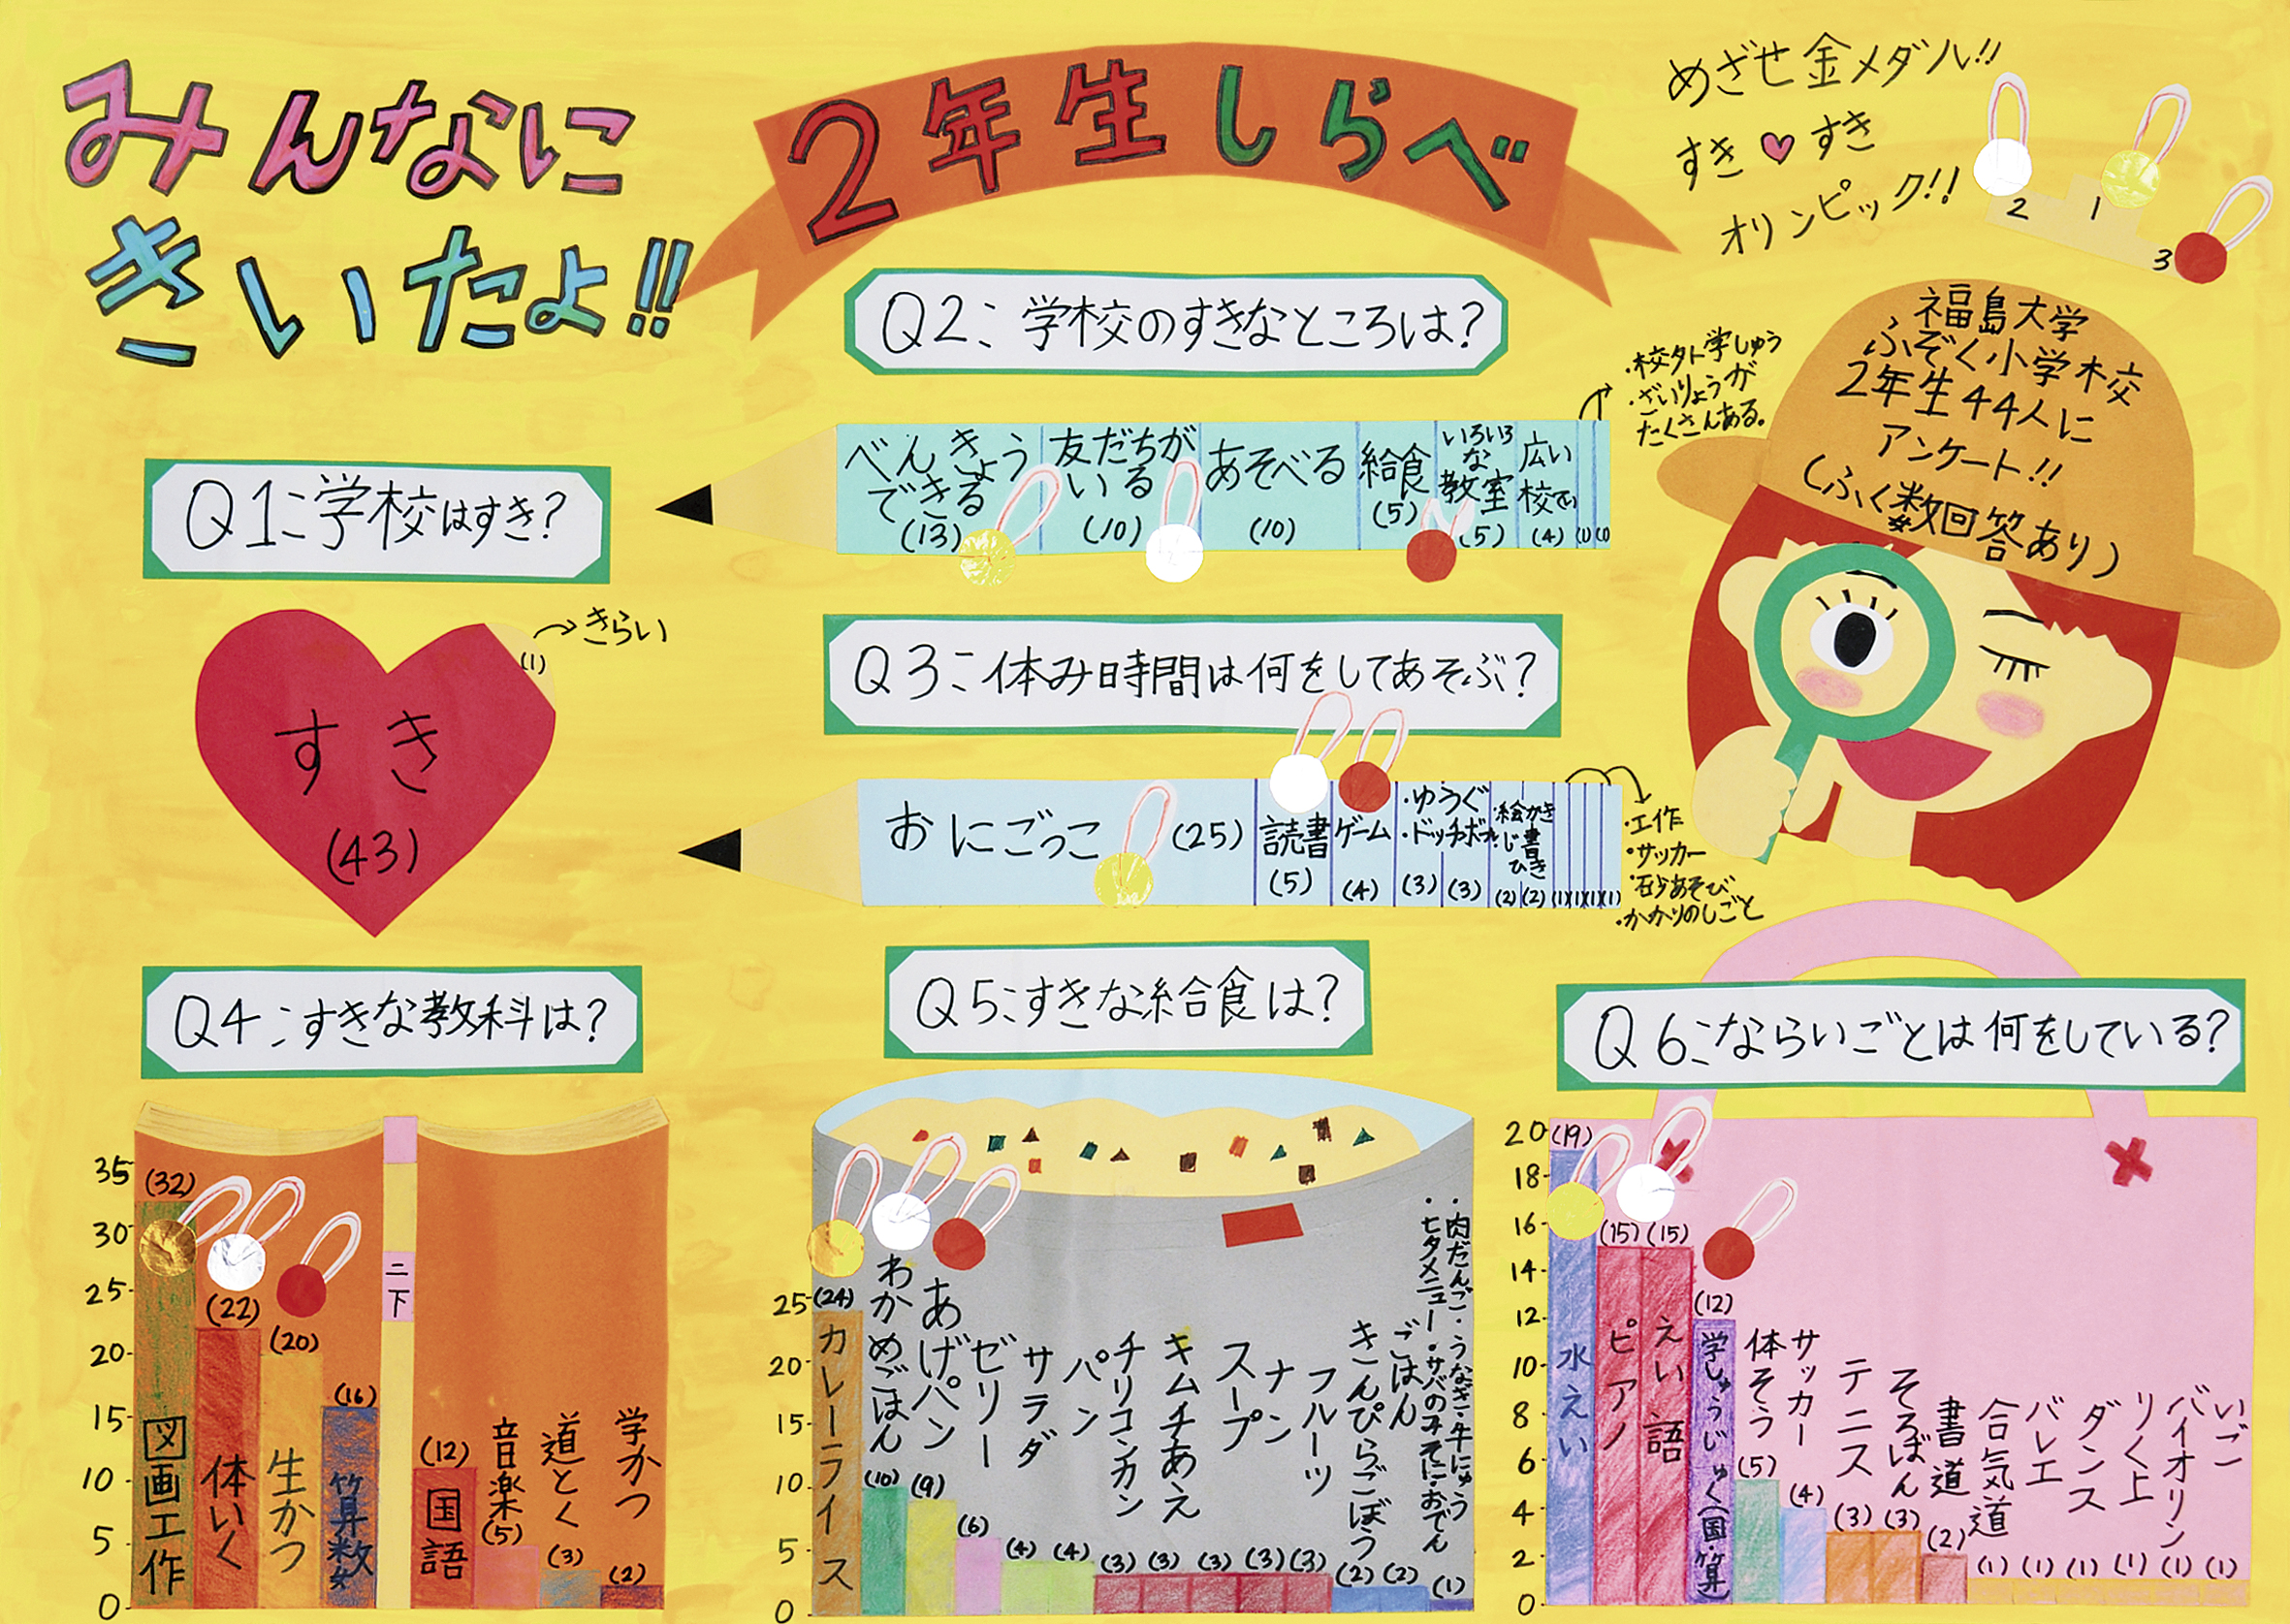 みんなに
きいたよ!!
2年生しらべ
めざせ金メダル!!
すき♥すき
オリンピック!!
2
1
3
福島大学
ふぞく小学校
2年生44人に
アンケート!!
(ふく数回答あり)
Q1:学校はすき?
すき
(43)
きらい
(1)
Q2:学校のすきなところは?
べんきょう
できる
(13)
友だちが
いる
(10)
あそべる
(10)
給食
(5)
いろいろ
な
教室
(5)
広い
校てい
(4)
(1)
(1)
・校外学しゅう
・ざいりょうが
たくさんある。
Q3:休み時間は何をしてあそぶ?
おにごっこ (25)
読書
(5)
ゲーム
(4)
・ゆうぐ
・ドッチボール
(3)
(3)
・絵かき
・じ書ひき
(2)
(2)
(1)(1)(1)(1)
・工作
・サッカー
・砂あそび
・かかりのしごと
Q4:すきな教科は?
35
30
25
20
15
10
5
0
(32)
図画工作
(22)
体いく
(20)
生かつ
(16)
算数
二下
(12)
国語
音楽
(5)
道とく
(3)
学かつ
(2)
Q5:すきな給食は?
25
20
15
10
5
0
(24)
カレーライス
わかめごはん
(10)
あげパン
(9)
ゼリー
(6)
サラダ
(4)
パン
(4)
チリコンカン
(3)
キムチあえ
(3)
スープ
(3)
ナン
(3)
フルーツ
(3)
きんぴらごぼう
(2)
ごはん
(2)
・肉だんご・うなぎ・牛にゅう
・七夕メニュー・サバのみそに・おでん
(1)
Q6:ならいごとは何をしている?
20
18
16
14
12
10
8
6
4
2
0
(19)
水えい
(15)
ピアノ
(15)
えい語
(12)
学しゅうじゅく(国・算)
体そう
(5)
サッカー
(4)
テニス
(3)
そろばん
(3)
書道
(2)
合気道
(1)
バレエ
(1)
ダンス
(1)
りく上
(1)
バイオリン
(1)
いご
(1)